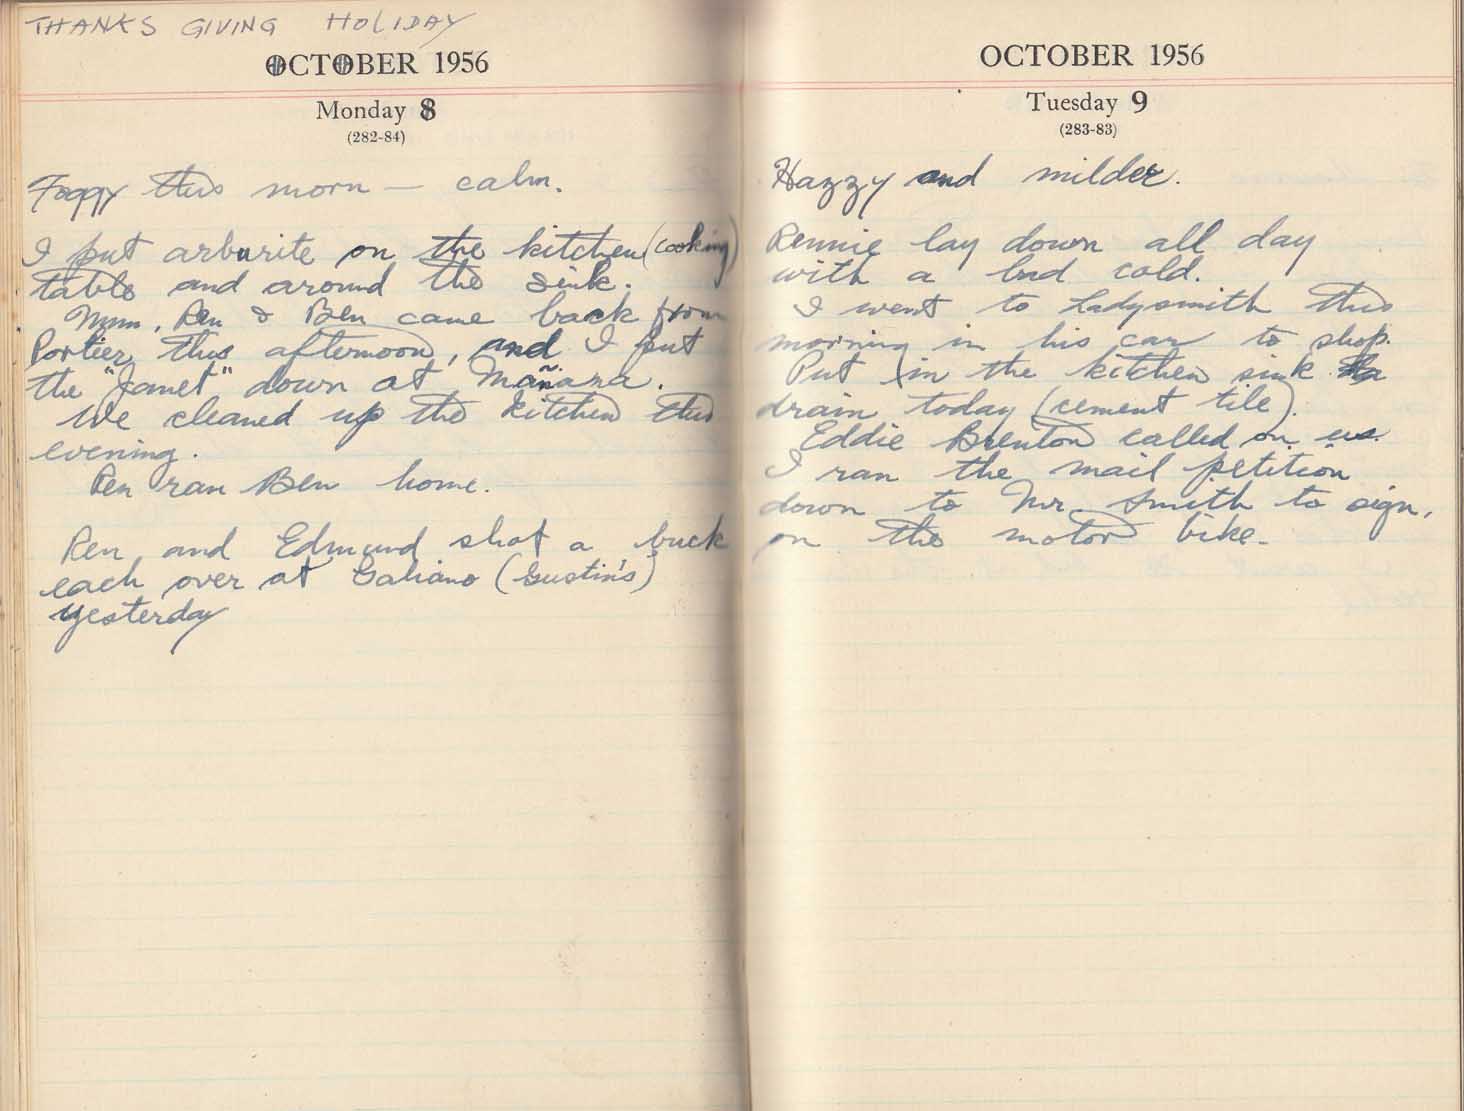 THANKS GIVING HOLIDAY
OCTOBER 1956
Monday 8
(282-84)
Foggy this morn — calm.
I put arburite on the kitchen (cooking)
table and around the sink.
Mum, Ren & Ben came back from
Porlier this afternoon, and I put
the "Janet" down at Mañana.
We cleaned up the kitchen this
evening.
Ren ran Ben home.
Ren and Edmund shot a buck
each over at Galiano (Gustin's)
yesterday
OCTOBER 1956
Tuesday 9
(283-83)
Hazzy and milder.
Rennie lay down all day
with a bad cold.
I went to Ladysmith this
morning in his car to shop.
Put in the kitchen sink
drain today (cement tile).
Eddie Brenton called on us.
I ran the mail petition
down to Mr. Smith to sign,
on the motor bike.